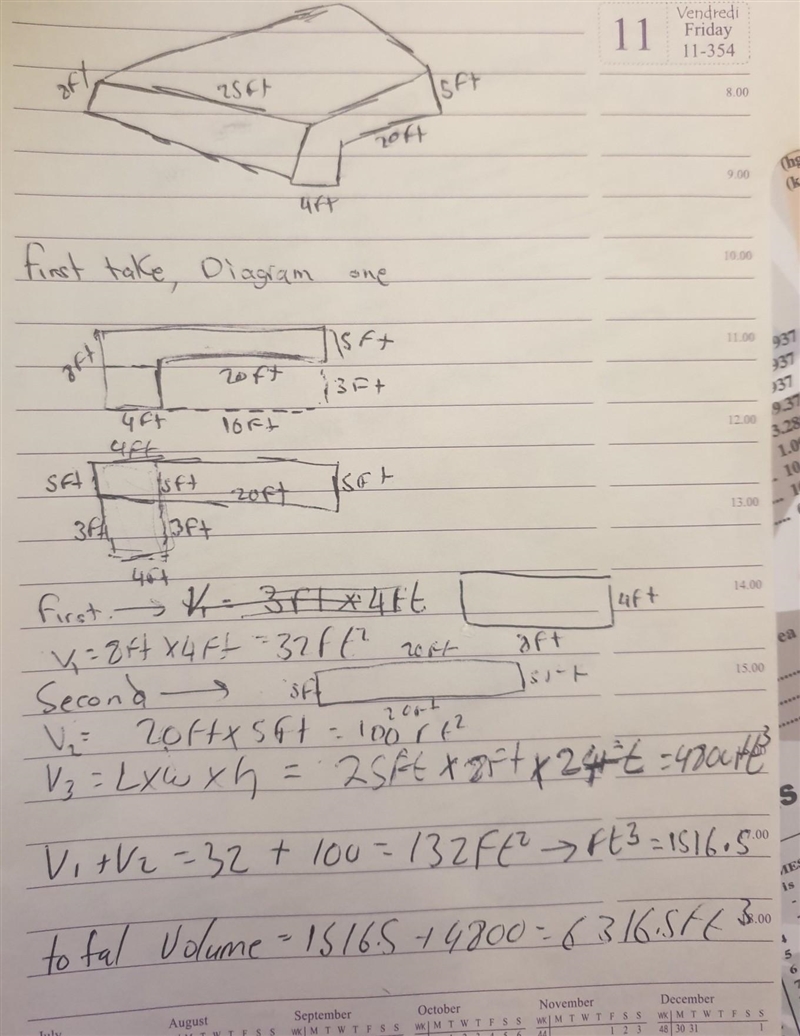 11
Vendredi
Friday
11-354
8ft
25ft
5ft
20ft
4ft
8.00
9.00
First take, Diagram one
10.00
11.00
8ft
5ft
20ft
3ft
4ft
16ft
12.00
4ft
5ft
5ft
20ft
5ft
3ft
3ft
4ft
13.00
14.00
First → V₁ = 3ft x 4ft
4ft
8ft
V₁ = 8ft x 4ft = 32ft²
20ft
15.00
Second →
20ft
V₂ = 20ft x 5ft = 100ft²
V₃ = L x w x h = 25ft x 8ft x 24ft = 4800ft³
V₁ + V₂ = 32 + 100 = 132ft² → ft³ = 1516.5
17.00
total Volume = 1516.5 + 4800 = 6316.5ft³
18.00
July
August
September
October
November
December
937
937
937
9.37
3.28
ea